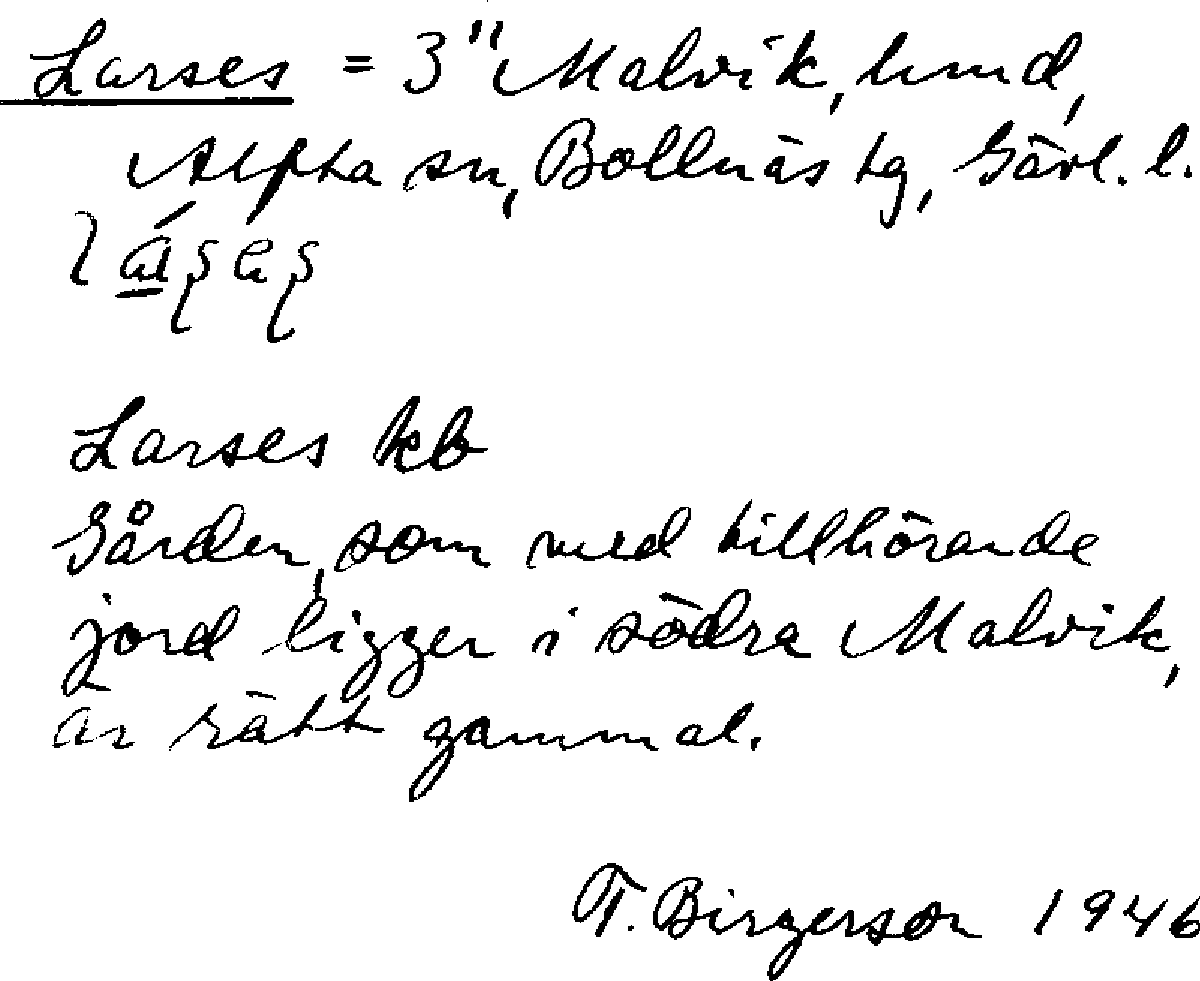 Larses = 3" Malvik, hmd,
Alfta sn, Bollnäs tg, Gävl. l.
Larses kb
Gården, som med tillhörande
jord ligger i södra Malvik,
är rätt gammal.
T. Birgerson 1946